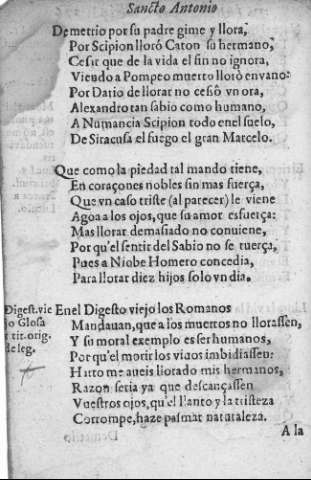 Sancto Antonio
Demetrio por su padre gime y llora,
Por Scipion lloró Caton su hermano,
Cesar que de la vida el fin no ignora,
Viendo a Pompeo muerto lloró en vano:
Por Dario de llorar no cessó vn ora,
Alexandro tan sabio como humano,
A Numancia Scipion todo en el suelo,
De Siracusa el fuego el gran Marcelo.
Que como la piedad tal mando tiene,
En coraçones nobles sin mas fuerça,
Que vn caso triste (al parecer) le viene
Agoa a los ojos, que su amor esfuerça:
Mas llorar demasiado no conuiene,
Por qu'el sentir del Sabio no se tuerça,
Pues a Niobe Homero concedia,
Para llorar diez hijos solo vn dia.
Digest. vie
jo Glosa
r tit. orig.
de leg.
En el Digesto viejo los Romanos
Mandauan, que a los muertos no llorassen,
Y su moral exemplo es ser humanos,
Por qu'el morir los viuos imbidiassen:
Harto me aueis llorado mis hermanos,
Razon seria ya que descançassen
Vuestros ojos, qu'el llanto y la tristeza
Corrompe, haze pasmar naturaleza.
A la